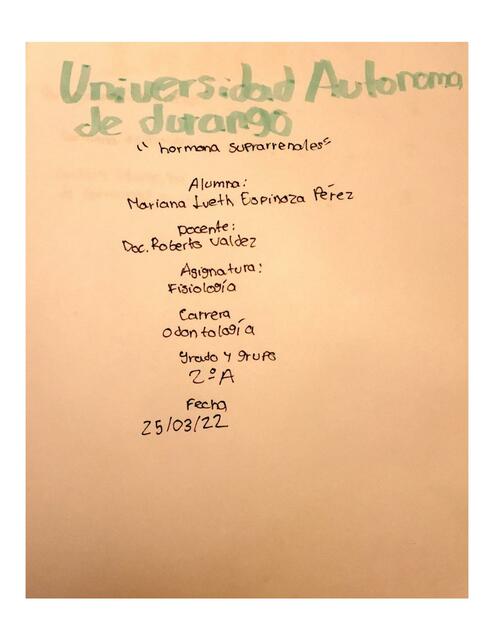 Universidad Autonoma
de durango
"hormona suprarrenales"
Alumna:
Mariana Iveth Espinoza Pérez
Docente:
Doc. Roberto Valdez
Asignatura:
Fisiología
Carrera
Odontología
Grado y grupo
2º A
Fecha
25/03/22